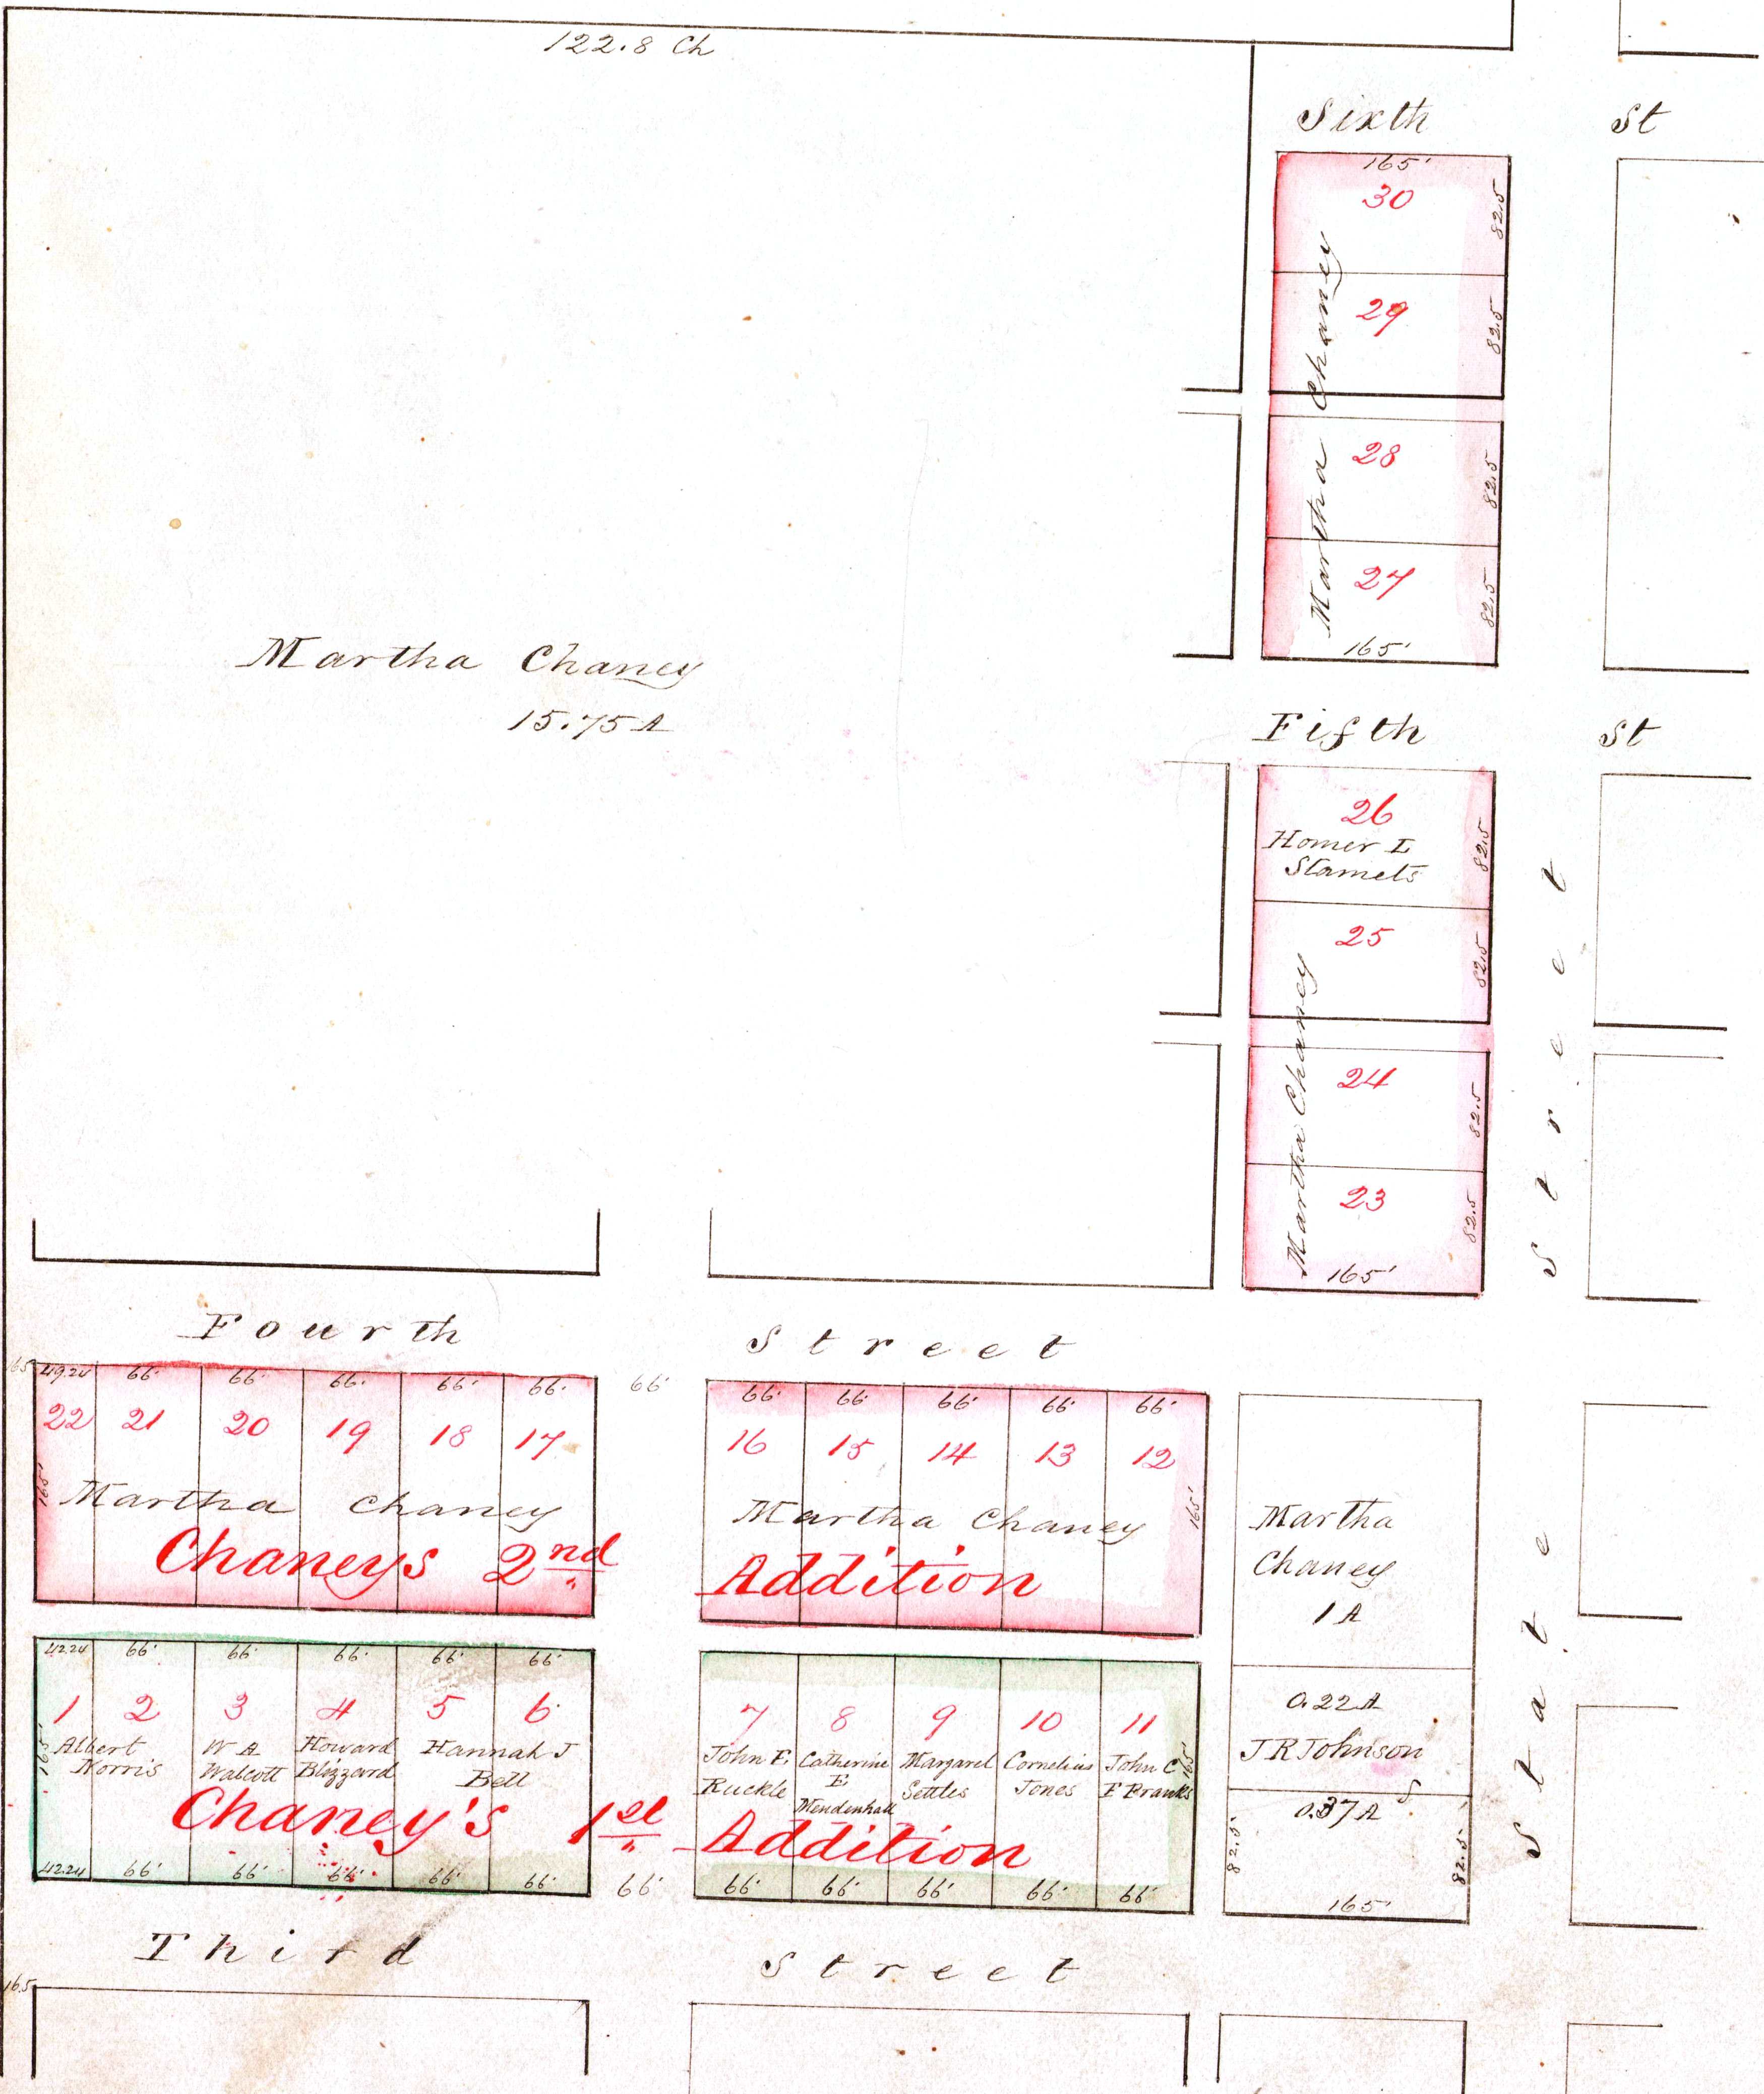 122.8 Ch
Sixth St
165'
30
82.5
29
82.5
28
82.5
27
82.5
165'
Martha Chaney
Martha Chaney
15.75 A
Fifth St
26
Homer L
Stamets
82.5
25
82.5
24
82.5
23
82.5
165'
Martha Chaney
State Street
Fourth Street
165 49.24 66' 66' 66' 66' 66' 66' 66' 66' 66' 66' 66'
22 21 20 19 18 17 16 15 14 13 12
165' 165'
Martha Chaney Martha Chaney
Chaneys 2nd Addition
Martha
Chaney
1 A
42.24 66' 66' 66' 66' 66'
1 2 3 4 5 6 7 8 9 10 11
165' 165'
Albert
Norris
W A
Walcott
Howard
Blizzard
Hannah J
Bell
John F.
Ruckle
Catherine
E
Mendenhall
Margaret
Settles
Cornelius
Jones
John C
F Branks
Chaney's 1st Addition
42.24 66' 66' 66' 66' 66' 66' 66' 66' 66' 66' 66'
0.22 A
J R Johnson
0.37 A
82.5' 82.5'
165'
Third Street
16.5